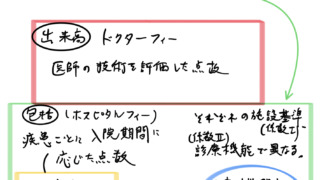 出来高 ドクターフィー
医師の技術を評価した点数
包括 (ホスピタルフィー)
疾患ごとに入院期間に
応じた点数
それぞれの施設基準
(係数Ⅰ)
(係数Ⅱ)
診療機能で異なる。